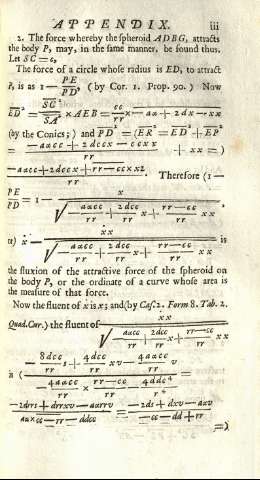 APPENDIX. iii
2. The force whereby the spheroid ADBG, attracts
the body P, may, in the same manner, be found thus.
Let SC=c,
The force of a circle whose radius is ED, to attract
P, is as 1 — PE/PD, (by Cor. 1. Prop. 90.) Now
ED² = SC²/SA² × AEB = cc/rr × — aa + 2dx — xx
(by the Conics;) and PD² = (ER² = ED² + EP²
= — aacc + 2dccx — ccxx / rr + xx =)
— aacc + 2dccx + rr — cc × x2 / rr. Therefore (1 —
PE/PD = 1 — x / √ — aacc/rr + 2dcc/rr x + rr — cc/rr xx,
) ẋ — xẋ / √ — aacc/rr + 2dcc/rr x + rr — cc/rr xx is
the fluxion of the attractive force of the spheroid on
the body P, or the ordinate of a curve whose area is
the measure of that force.
Now the fluent of ẋ is x; and (by Cas. 2. Form 8. Tab. 2.
Quad. Cur.) the fluent of xẋ / √ — aacc/rr + 2dcc/rr x + rr — cc/rr xx
is ( — 8dcc/rr s + 4dcc/rr xv — 4aacc/rr v / — 4aacc/rr × rr — cc/rr — 4ddc⁴/r⁴ =
— 2drrs + drrxv — aarrv / aa × cc — rr — ddcc = — 2ds + dxv — aav / — cc — dd + rr
=)